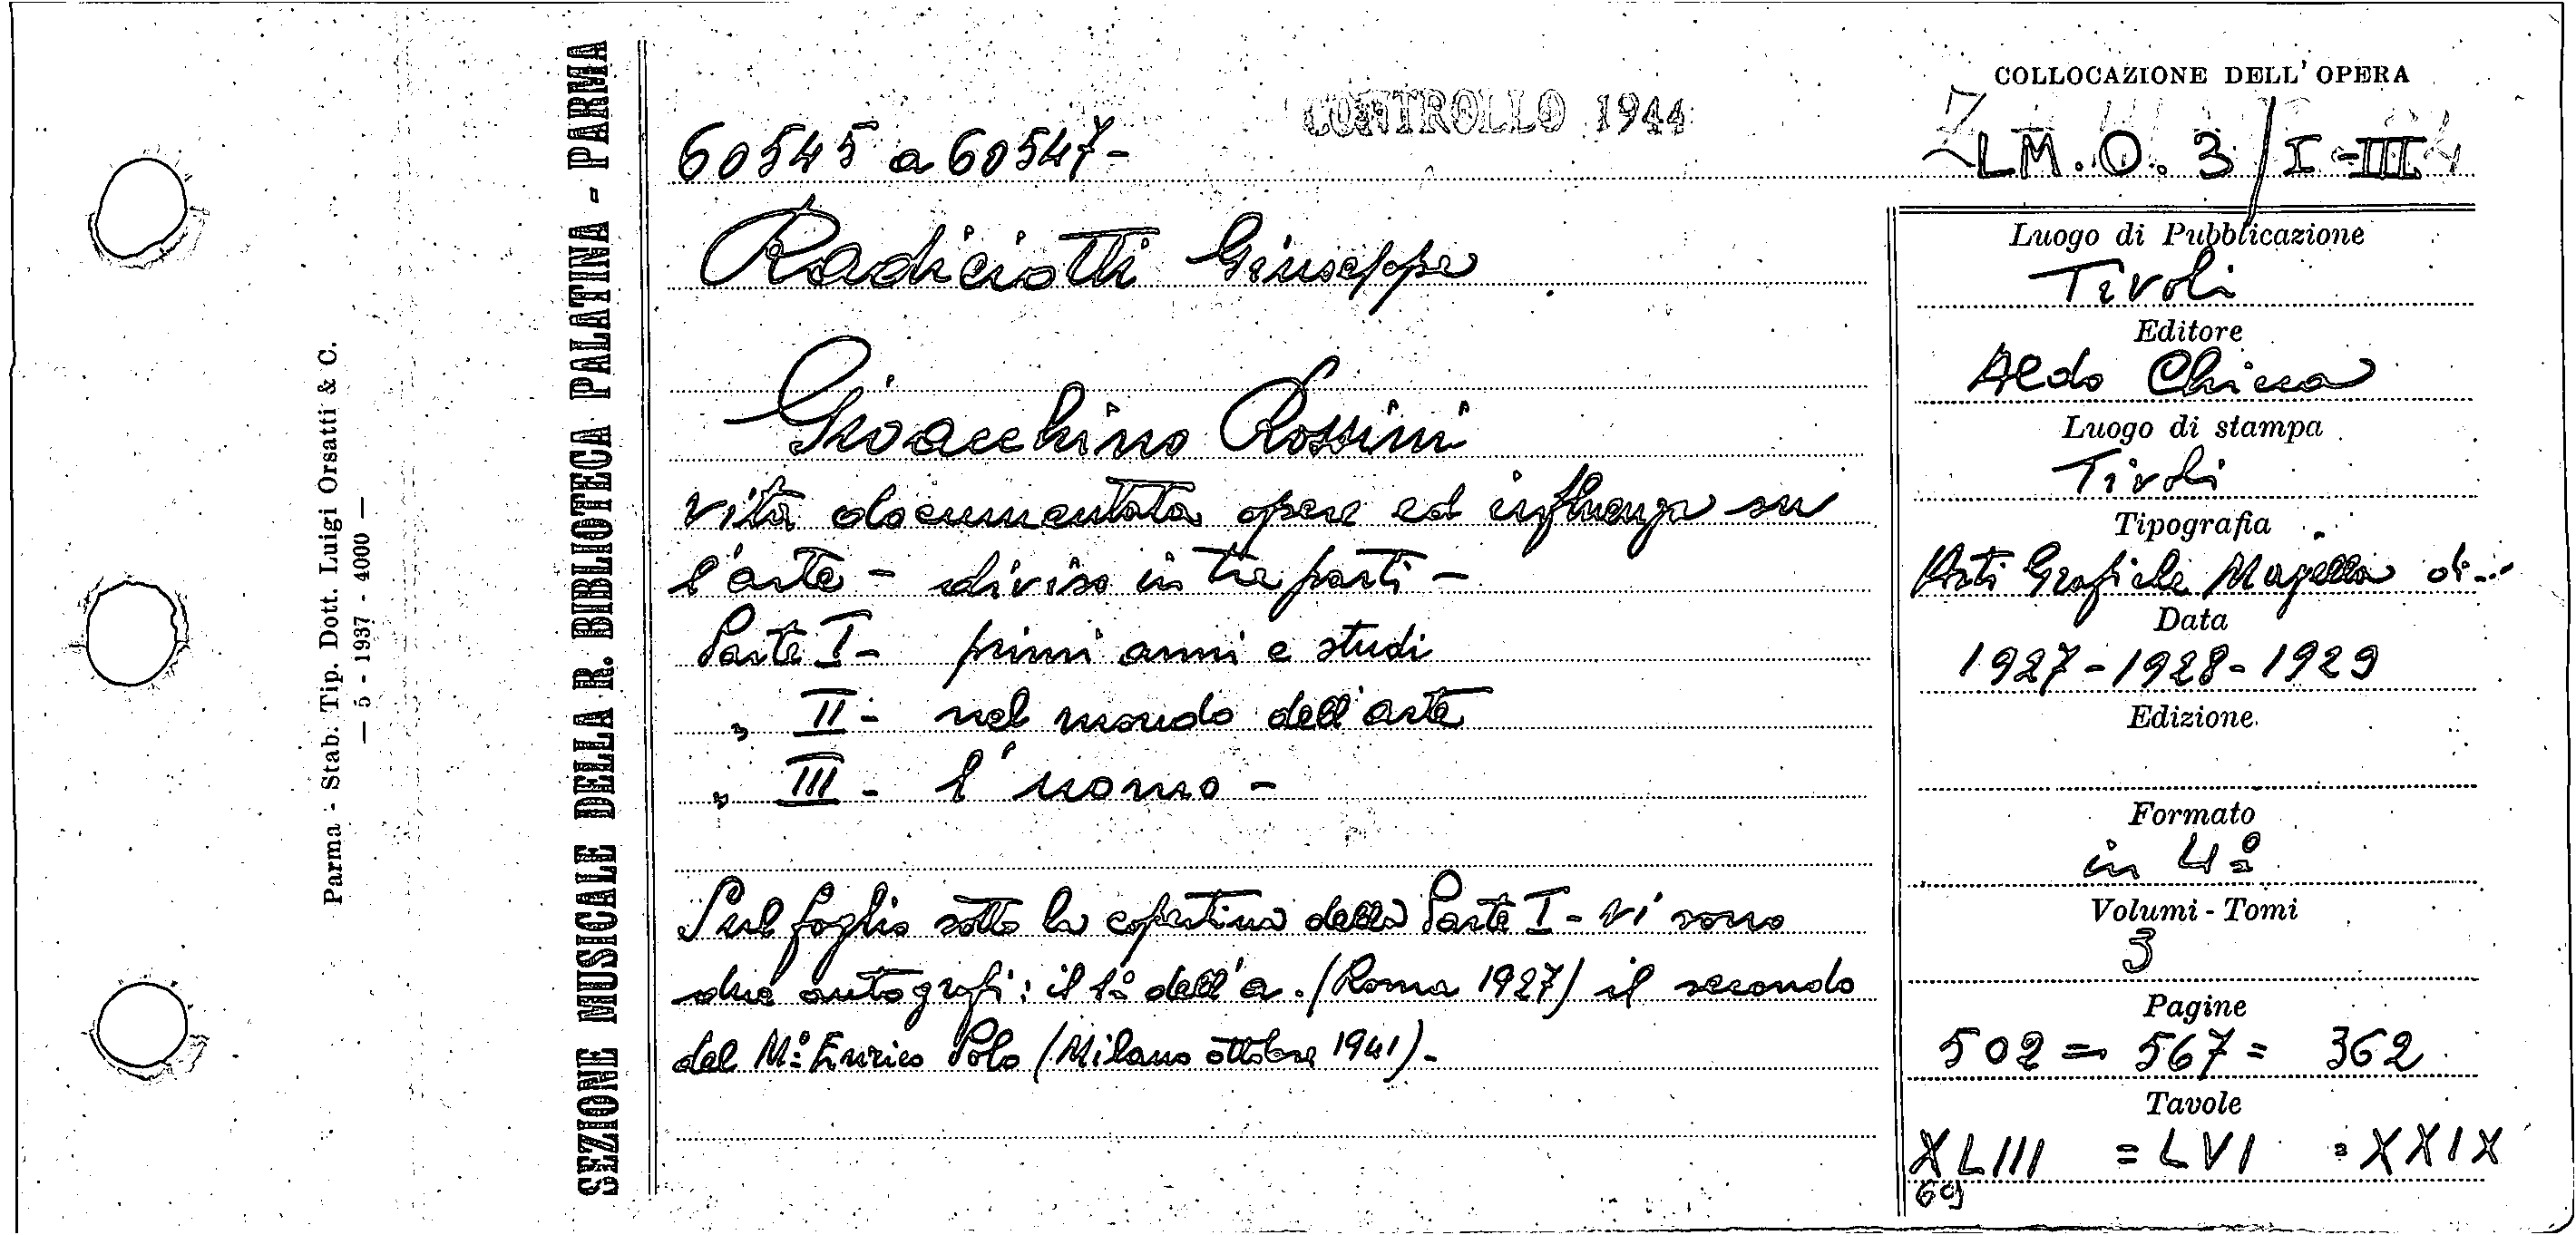 Parma - Stab. Tip. Dott. Luigi Orsatti & C.
— 5 - 1937 - 4000 —
SEZIONE MUSICALE DELLA R. BIBLIOTECA PALATINA - PARMA
CONTROLLO 1944
60545 a 60547-
Radiciotti Giuseppe
Gioacchino Rossini
vita documentata opere ed influenza su
l'arte - diviso in tre parti -
Parte I - primi anni e studi
" II - nel mondo dell'arte
" III - l'uomo -
Sul foglio sotto la copertina della Parte I - vi sono
due autografi: il 1º dell'a. (Roma 1927) il secondo
del Mº Enrico Polo (Milano ottobre 1941).-
COLLOCAZIONE DELL'OPERA
LM.O.3/I-III
Luogo di Pubblicazione
Tivoli
Editore
Aldo Chicca
Luogo di stampa
Tivoli
Tipografia
Arti Grafiche Majella di...
Data
1927-1928-1929
Edizione
Formato
in 4º
Volumi - Tomi
3
Pagine
502 = 567 = 362
Tavole
XLIII = LVI = XXIX
69